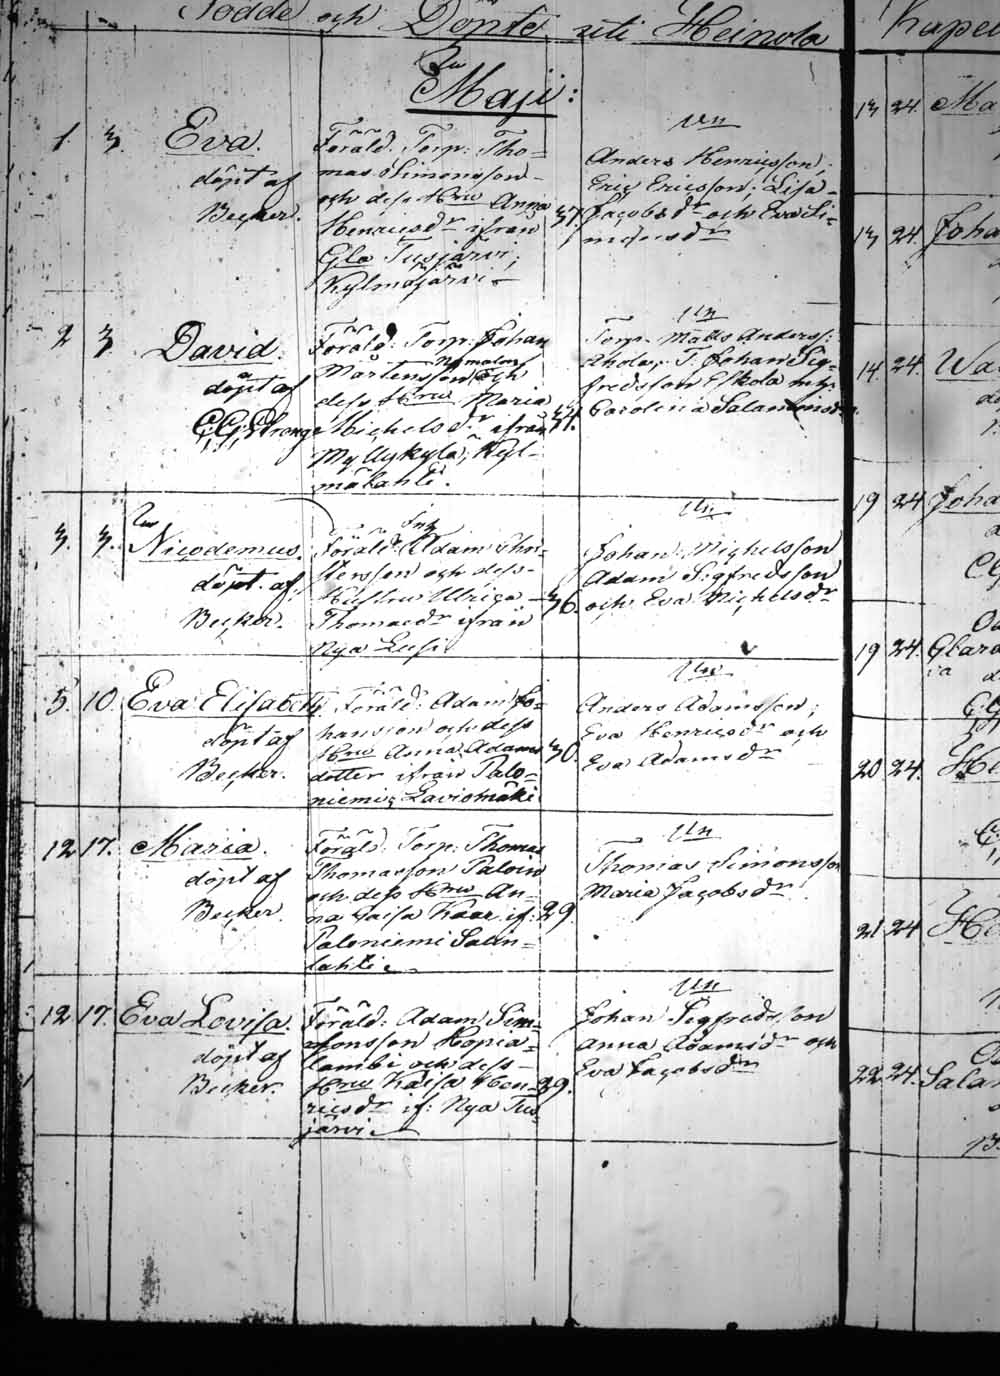 Födde och Döpte uti Heinola
Maji:
1. 3. Eva.
döpt af
Becker.
Föräld: Torp: Tho=
mas Simonsson
och dess Hru Anna
Henricsdr ifrån
Gla Tusjärvi,
Kylmäjärvi
37.
Un
Anders Henricsson,
Eric Ericsson, Lisa
Jacobsdr och Eva Si=
monsdr
2 3 David.
döpt af
C.G. Strange
Föräld: Torp: Johan
Mårtensson och
dess Hru Maria
Michelsdr ifrån
Myllykylä, Kyl=
mälahti.
34.
Un
Torp. Matts Anderss:
Ahola, T. Johan Sig=
fredsson Eskola
Carolina
3. 3. Nicodemus.
döpt af
Becker.
Föräld: Adam Chri=
stersson och dess
Hustru Ulrica
Thomaedr ifrån
Nya Lusi
36.
Un
Johan Michelsson
Adam Sigfredsson
och Eva Michelsdr
5. 10. Eva Elisabeth
döpt af
Becker.
Föräld: Adam Jo=
hansson och dess
Hru Anna Adams
dotter ifrån Palo=
niemi, Laviomäki
30.
Un
Anders Adamsson;
Eva Henricsdr och
Eva Adamsdr
12 17. Maria.
döpt af
Becker.
Föräld: Torp: Thomas
Thomasson Paloin
och dess Hru An=
na Caisa Kaar if:
Paloniemi Salin=
lahti
29.
Un
Thomas Simonsson
Maria Jacobsdr
12 17. Eva Lovisa.
döpt af
Becker.
Föräld: Adam Sim=
onsson Kopia=
lambi och dess
Hru Kaisa Hen=
ricsdr if: Nya Tus
järvi
29.
Un
Johan Sigfredsson
Anna Adamsdr och
Eva Jacobsdr
13 24. Ma
13 24. Joha
14. 24. Wa
19 24 Joha
19 24.
20 24. He
21 24 He
22 24.